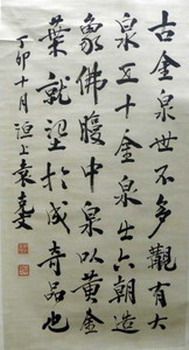 古金泉世不多觀有大
泉五十金泉出六朝造
象佛腹中泉以黃金
葉就望於成奇品也
丁卯十月洹上袁克文